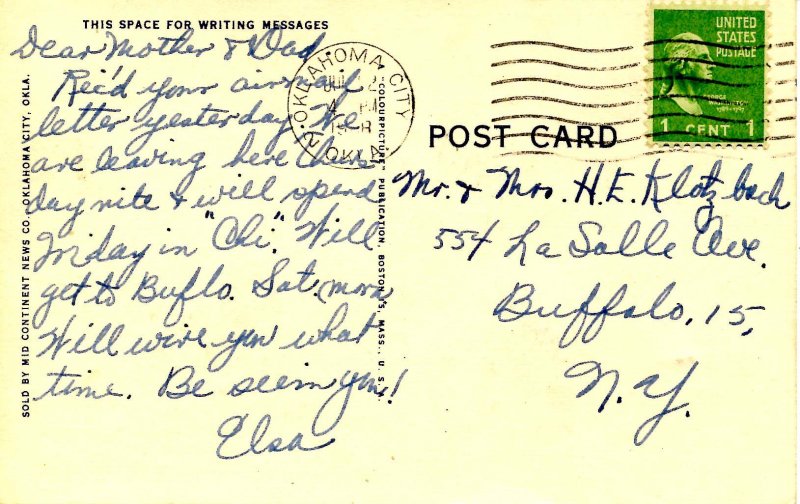 THIS SPACE FOR WRITING MESSAGES
Dear Mother & Dad
Rec'd your airmail
letter yesterday. We
are leaving here Thurs
day nite & will spend
Friday in "Chi". Will
get to Buflo. Sat. morn
Will wire you what
time. Be seein you!
Elsa
SOLD BY MID CONTINENT NEWS CO., OKLAHOMA CITY, OKLA.
"COLOURPICTURE" PUBLICATION, BOSTON 15, MASS., U. S.
OKLAHOMA CITY
2 OKLA.
PM
UNITED
STATES
POSTAGE
GEORGE
WASHINGTON
1 CENT 1
POST CARD
Mr. & Mrs. H.E. Klotzbach
554 La Salle Ave.
Buffalo, 15,
N.Y.